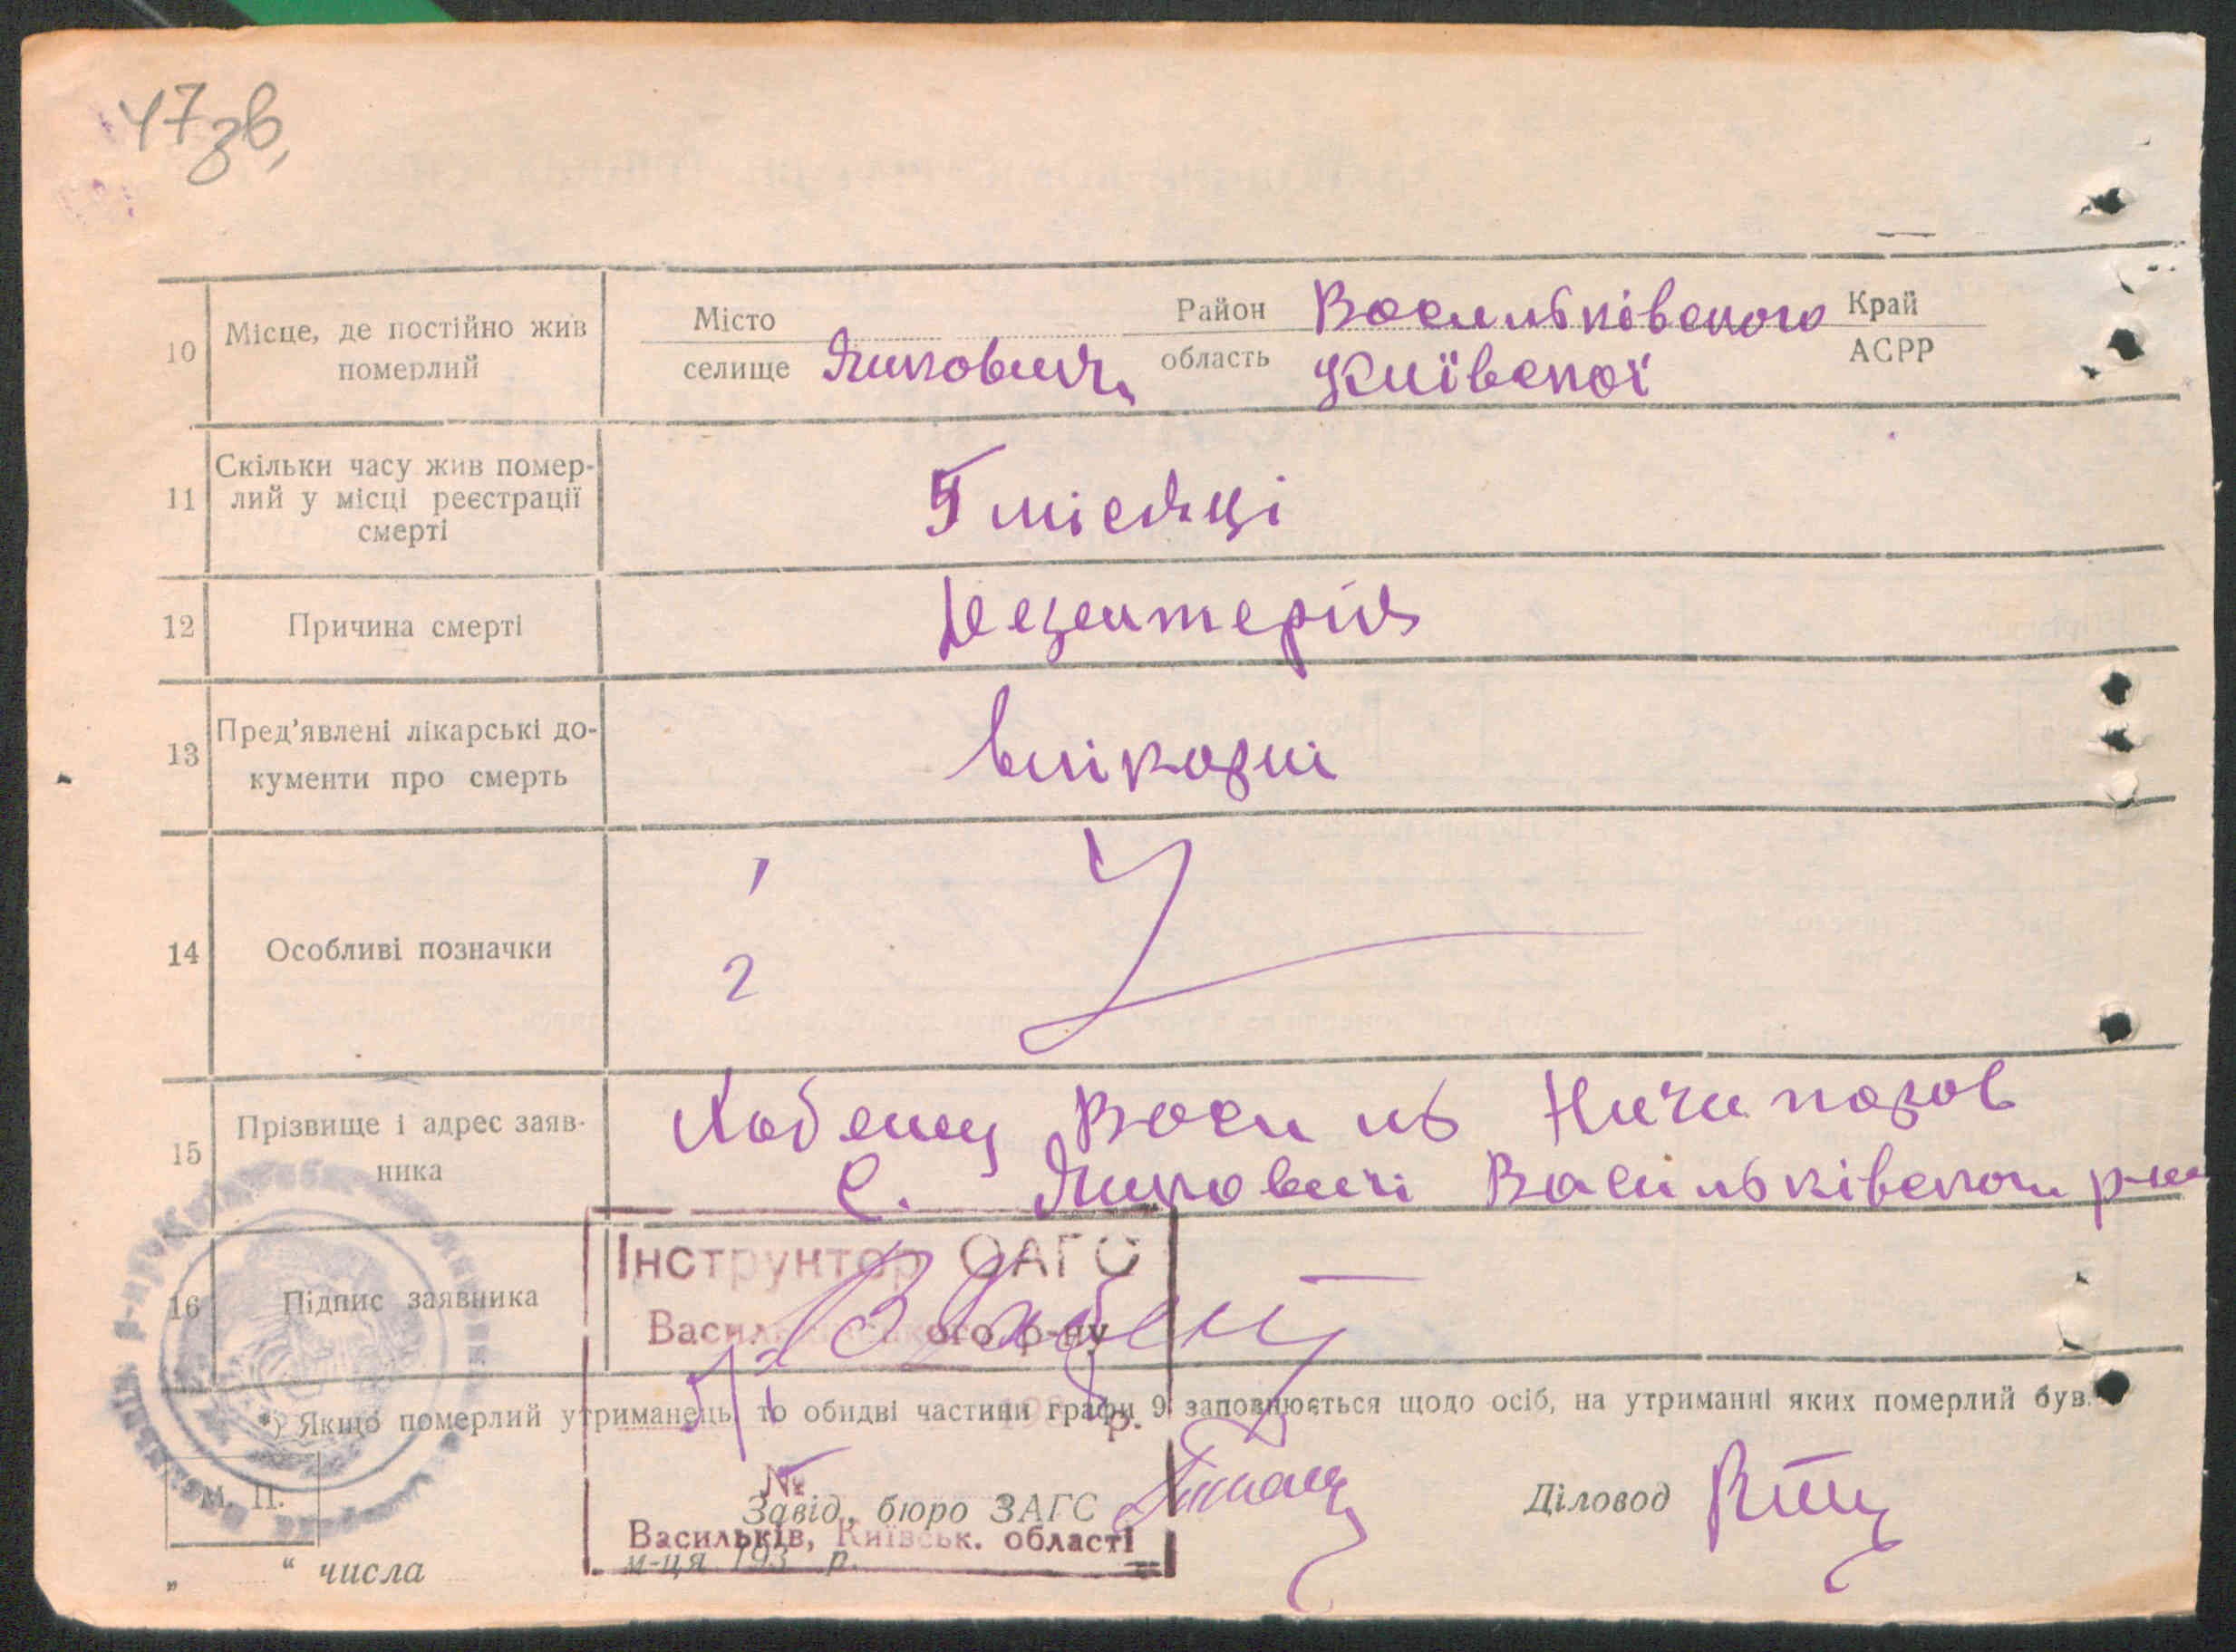 47зв,
10 Місце, де постійно жив померлий
Місто Район Васильківського Край
селище область Київської АСРР
11 Скільки часу жив помер-
лий у місці реєстрації
смерті
5 місяці
12 Причина смерті
Дезентерія
13 Пред'явлені лікарські до-
кументи про смерть
14 Особливі позначки
1
2
15 Прізвище і адрес заяв-
ника
Хабенец Василь Ничипоров
с. Яцковичі Васильківського р-ну
16 Підпис заявника
Інструктор ЗАГС
р-ну
*) Якщо померлий утриманець, то обидві частини графи 9 заповнюється щодо осіб, на утриманні яких померлий був.
р.
№
М. П.
Завід. бюро ЗАГС
Діловод
Васильків, Київськ. області
„ “ числа м-ця 193 р.